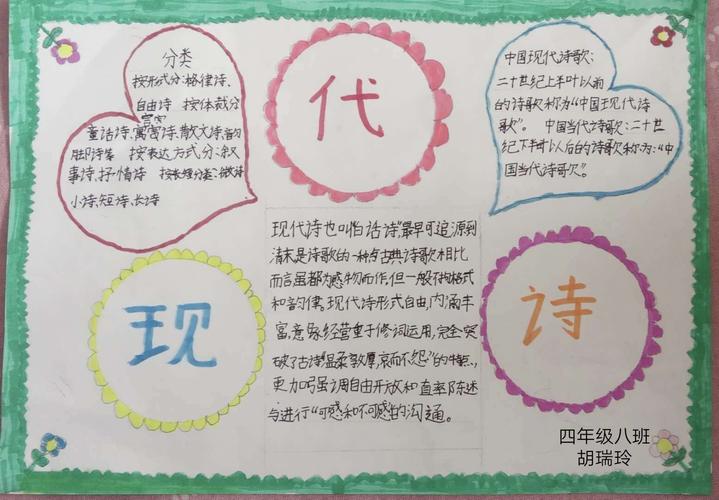 分类
按形式分:格律诗、
自由诗 按体裁分
童话诗、寓言诗、散文诗、韵
脚诗等 按表达方式分:叙
事诗、抒情诗 按长短分类:微诗
小诗、短诗、长诗
代
中国现代诗歌:
二十世纪上半叶以前
的诗歌称为“中国现代诗
歌”。 中国当代诗歌:二十世
纪下半叶以后的诗歌称为:“中
国当代诗歌”。
现
现代诗也叫“白话诗”最早可追源到
清末,是诗歌的一种,与古典诗歌相比
而言,虽都为感物而作,但一般不拘格式
和韵律。现代诗形式自由,内涵丰
富,意象经营重于修词运用,完全突
破了古诗“温柔敦厚,哀而不怨”的特点,
更加强调自由开放和直率陈述
与进行“可感和不可感”的沟通。
诗
四年级八班
胡瑞玲